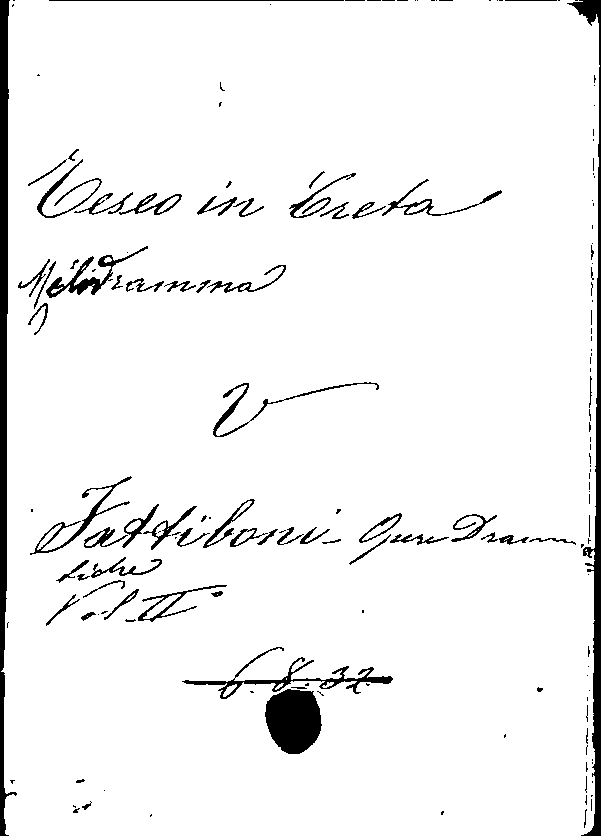 Teseo in Creta
Melodramma
V
Fattiboni - Opere Dramma
tiche
Vol. II°
6.8.32